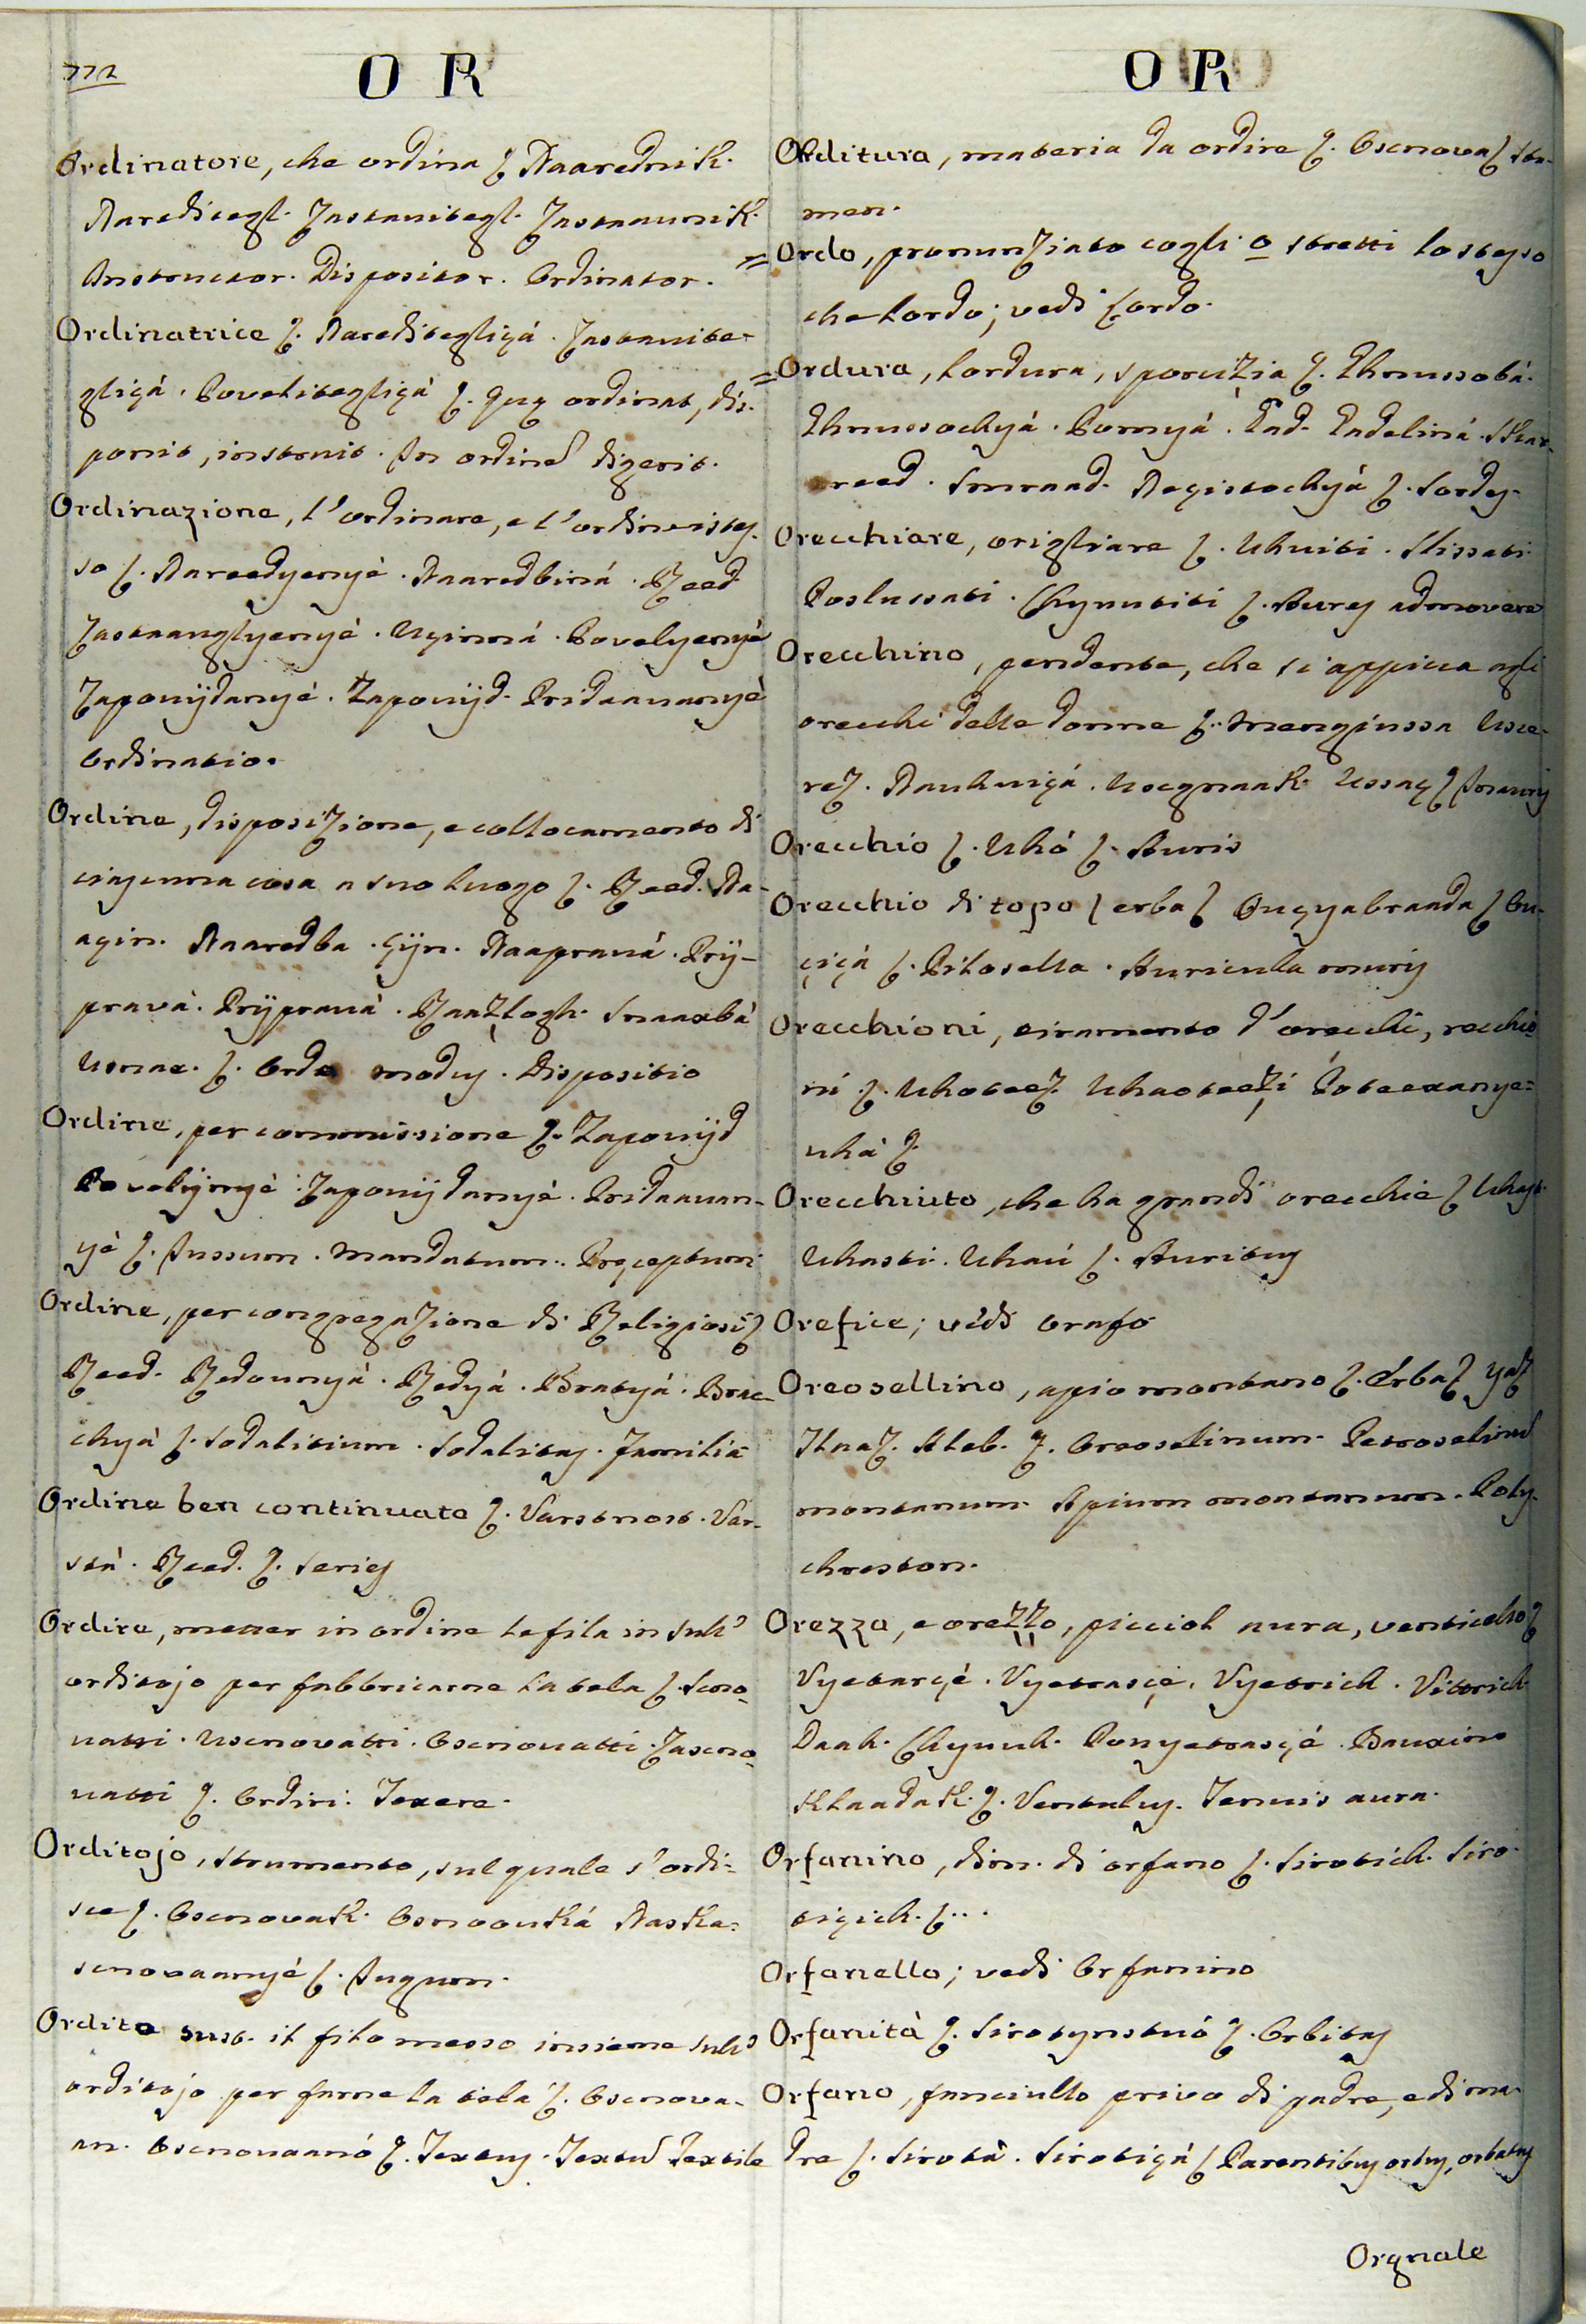 772
O R
Ordinatore, che ordina ʃ Naarednik.
Nareditegl. Zastavitegl. Zastaavnik.
Instructor. Dispositor. Ordinator.
Ordinatrice ʃ. Nareditegliçá. Zastavite-
gliçá. Povelitegliçá ʃ. Quę ordinat, dis-
ponit, instruit. In ordine digerit.
Ordinazione, l'ordinare, e l'ordine istes-
so ʃ. Nareedyenyé. Naaredbiná. Reed
Zastaanglyenyé. Uçinná. Povelyenyé
Zapovijdanyé. Zapovijd. Pridaavanyé
Ordinatio.
Ordine, disposizione, e collocamento di
ciascuna cosa a suo luogo ʃ. Reed. Na-
açin. Naaredba. Çijn. Naapravá. Prij-
pravá. Prijpravá. Raazlogh. Smaaxbá
Ordo modus. Dispositio
Ordine, per commissione ʃ. Zapovijd
Povelijnyé. Zapovijdanyé. Pridaavan-
yé ʃ. Jussum. Mandatum. Pręceptum
Ordine, per congregazione di Religiosi ʃ
Reed. Redovnyá. Redyá. Bratyá. Brac-
chyá ʃ. Sodalitium. Sodalitas. Familia
Ordine ben continuato ʃ. Varstnost. Var-
stá. Reed. ʃ. Series
Ordire, metter in ordine le fila in sull'
orditojo per fabbricarne la tela ʃ. Scno-
vatti. Uscnovatti. Oscnovatti. Zascno-
vatti ʃ. Ordiri. Texere.
Orditojo, strumento, sul quale s'ordi-
sce ʃ. Oscnovak. Osnoovká Naska-
scnovaanyé ʃ. Jugum.
Ordito sust. il filo messo insieme sull'
orditojo per farne la tela ʃ. Oscnova-
an. Oscnovaanó ʃ. Textus. Textu Textile
O R
Orditura, materia da ordire ʃ. Oscnova ʃ Sta-
men.
= Ordo, pronunziato cogli o stretti lo stesso
che Lordo; vedi Lordo.
= Ordura, lordura, sporcizia ʃ. Ghnussobá.
Ghnussochyá. Pomyá. Gad. Gadeliná. Skar-
reed. Smraad. Neçistochyá ʃ. Sordes.
Orecchiare, origliare ʃ. Uhviti. Slissati
Poslussati. Chyuutiti ʃ. Aures admovere
Orecchino, pendente, che si appicca agli
orecchi delle donne ʃ. Mengiussa Usce-
rez. Nauhviçá. Uscgnaak. Ussaç ʃ Inauris
Orecchio ʃ. Uhó ʃ. Auris
Orecchio di topo ʃ erba ʃ Ouçyabraada ʃ Ov-
çiçá ʃ. Pilosella. Auricula muris
Orecchioni, tiramento d'orecchi, recchio-
ni ʃ. Uhoteez. Uhaoteezi Poteexanye-
uhá ʃ.
Orecchiuto, che ha grandi orecchie ʃ Uhast.
Uhasti. Uhaú ʃ. Auritus
Orefice; vedi Orafo
Oreosellino, apio montano ʃ. Erba ʃ Yaz
Oreoselinum. Petroselinu
montanum. Apium montanum. Poly-
chreston.
Orezza, e orezzo, picciol aura, venticello ʃ
Vyetarçé. Vyetrasçé. Vyetrich. Vitrich
Daah. Chyuuh. Povyetrasçé.
Klaadak. ʃ. Ventulus. Tenuis aura.
Orfanino, dim. di orfano ʃ. Sirotich. Siro-
tiçich. ʃ...
Orfanello; vedi Orfanino
Orfanità ʃ. Sirotynstvó ʃ. Orbitas
Orfano, fanciullo privo di padre, e di ma-
dre ʃ. Sirotá. Sirotiçá ʃ Parentibus orbus, orbatus
Orgnale